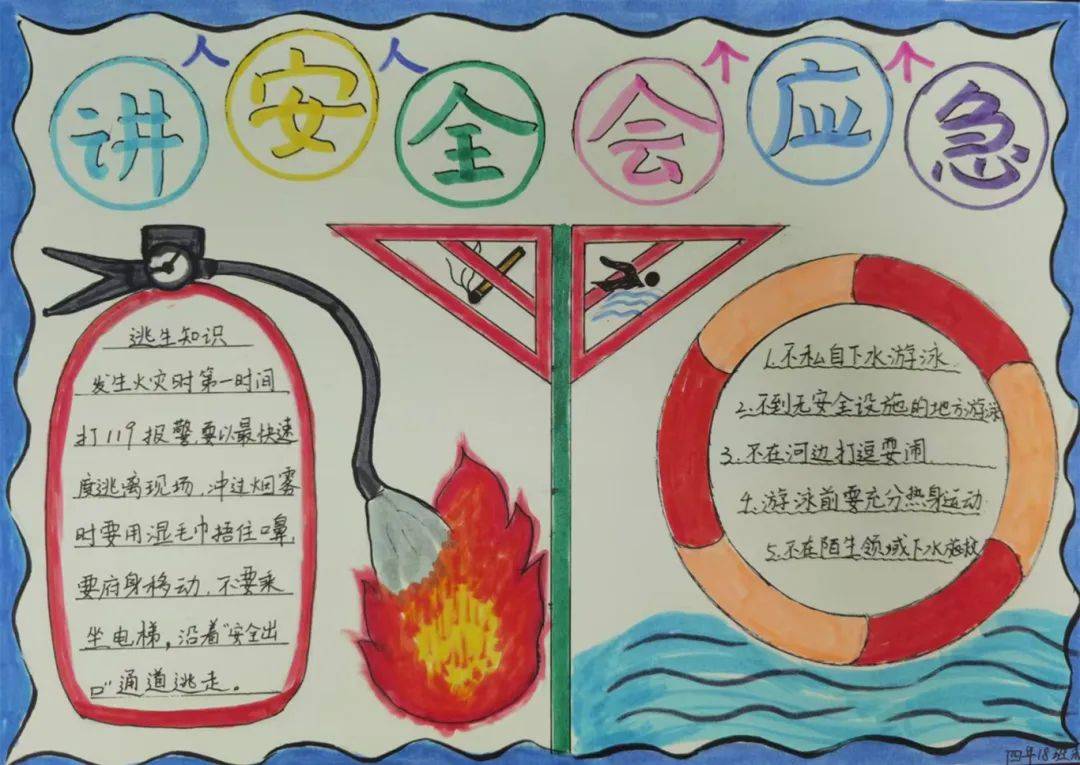 人人讲安全 个个会应急
逃生知识
发生火灾时第一时间
打119报警,要以最快速
度逃离现场,冲过烟雾
时要用湿毛巾捂住口鼻,
要府身移动,不要乘
坐电梯,沿着“安全出
口”通道逃走。
1.不私自下水游泳
2.不到无安全设施的地方游泳
3.不在河边打逗耍闹
4.游泳前要充分热身运动
5.不在陌生领域下水施救
四年18班